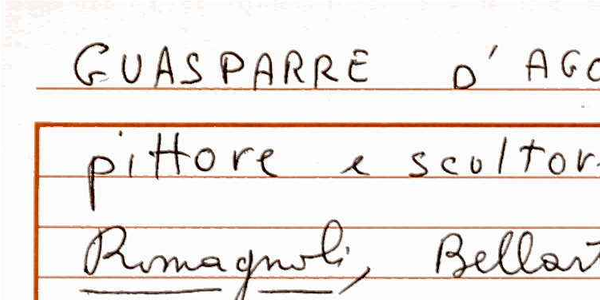 GUASPARRE D' AGO
pittore e scultor
Romagnoli, Bellart